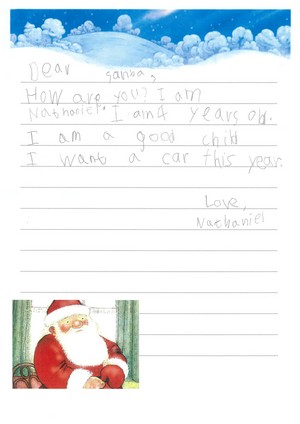 Dear santa,
How are you? I am
Nathaniel. I am 4 years old.
I am a good child
I want a car this year.
Love,
Nathaniel